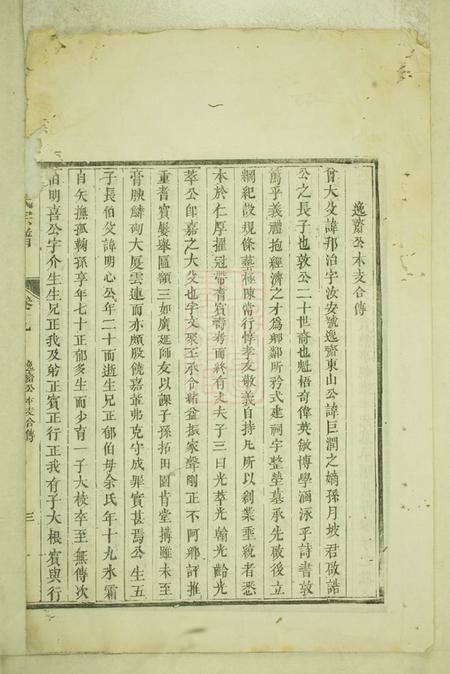 逸齋公本支合傳
曾大父諱邦治字汝安號逸齋東山公諱巨潤之嫡孫月坡君啟誥
公之長子也敦公二十世裔也魁梧奇偉英敏博學涵泳乎詩書敦
篤乎義禮抱經濟之才為鄉鄰所矜式建祠宇整塋墓承先啟後立
綱紀設規條葬極陳常行惇孝友敬義自持凡所以創業垂統者悉
本於仁厚擢冠帶耆賓壽考而終有丈夫子三曰光莘光翰光齡光
莘公即嘉之大父也字文聚至承合緒益振家聲剛正不阿鄉評推
重耆賓髮舉區領三如廣延師友以課子孫拓田園肯堂搆雖未至
膏腴鱗砌大厦雲連而亦頗殷饒嘉輩弗克守成罪實甚焉公生五
子長伯父諱明心公年二十而逝生兄正郁伯母余氏年十九氷霜
自矢撫孤鞠孫享年七十正郁多生而少育一子大棱卒至無傳次
伯明喜公字介生生兄正我及弟正賓正行正我有子大根賓與行
宗譜
卷九
逸齋公本支合傳
三